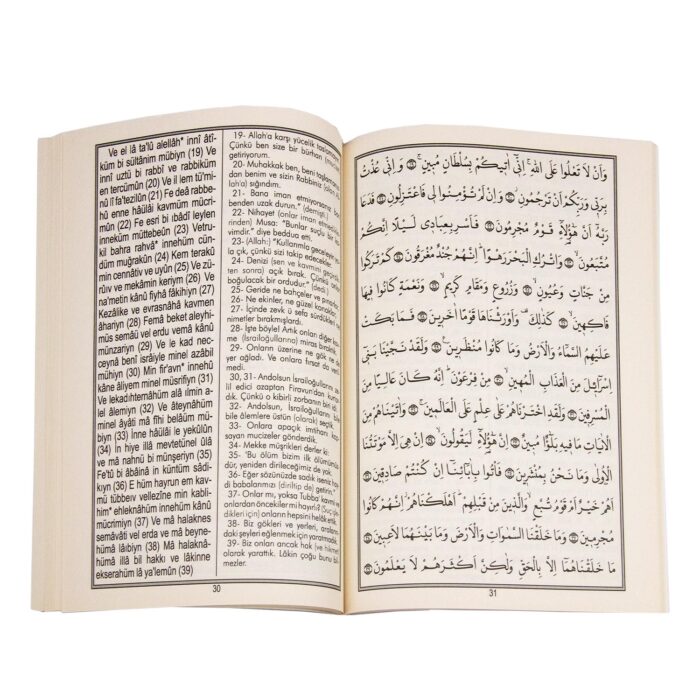 Ve el lâ ta'lû alellâh* innî âtî-
küm bi sültânim mübiyn (19) Ve
innî uztü bi rabbî ve rabbiküm
en tercümûn (20) Ve il lem tü'mi-
nû lî fa'tezilûn (21) Fe deâ rabbe-
hû enne hâülâi kavmüm mücri-
mûn (22) Fe esri bi ibâdî leylen
inneküm müttebeûn (23) Vetru-
kil bahra rahvâ* innehüm cün-
düm muğrakûn (24) Kem terakû
min cennâtiv ve uyûn (25) Ve zü-
rûıv ve mekâmin keriym (26) Ve
na'metin kânû fiyhâ fâkihiyn (27)
Kezâlike ve evrasnâhâ kavmen
âhariyn (28) Femâ beket aleyhi-
müs semâü vel erdu vemâ kânû
münzariyn (29) Ve le kad nec-
ceynâ benî isrâiyle minel azâbil
mühiyn (30) Min fir'avn* innehû
kâne âliyem minel müsrifiyn (31)
Ve lekadihternâhüm alâ ılmin a-
lel âlemiyn (32) Ve âteynâhüm
minel âyâti mâ fîhi belâüm mü-
biyn (33) İnne hâülâi le yekûlûn
(34) İn hiye illâ mevtetünel ûlâ
ve mâ nahnü bi münşeriyn (35)
Fe'tû bi âbâinâ in küntüm sâdi-
kıyn (36) E hüm hayrun em kav-
mü tübbeıv vellezîne min kabli-
him* ehleknâhüm innehüm kânû
mücrimiyn (37) Ve mâ halaknes
semâvâti vel erda ve mâ beyne-
hümâ lâıbiyn (38) Mâ halaknâ-
hümâ illâ bil hakkı ve lâkinne
ekserahüm lâ ya'lemûn (39)
19- Allah'a karşı yücelik taslamayın.
Çünkü ben size bir bürhan (mucize)
getiriyorum.
20- Muhakkak ben, beni taşlamanızdan
benim ve sizin Rabbiniz (olan Allah'a)
sığındım.
21- Bana iman etmiyorsanız
benden uzak durun." (demişti.)
22- Nihayet (onlar iman etmeyince
Musa: "Bunlar suçlu bir
vimdir." diye beddua etti.
23- (Allah:) "Kullarımla geceleyin
çık, çünkü sizi takip edecekler.
24- Denizi (sen ve kavmin geçtik-
ten sonra) açık bırak. Çünkü onlar
boğulacak bir ordudur." (dedi.)
25- Geride ne bahçeler ve pınarlar
26- Ne ekinler, ne güzel konaklar
27- İçinde zevk ü sefa sürdükleri
nimetler bırakmışlardı.
28- İşte böyle! Artık onları diğer
me (İsrailoğullarına) miras
29- Onların üzerine ne gök ne
yer ağladı. Ve onlara fırsat da
medi.
30, 31- Andolsun İsrailoğullarını
lil edici azaptan Firavun'dan kurtar-
dık. Çünkü o kibirli zorbanın biri idi.
32- Andolsun, İsrailoğullarını
bile âlemlere üstün (olarak)
33- Onlara apaçık imtihan
sayan mucizeler gönderdik.
34- Mekke müşrikleri derler ki:
35- "Bu ölüm bizim ilk ölümümüz-
dür, yeniden dirileceğimiz de yok.
36- Eğer sözünüzde sadık iseniz
di babalarımızı (diriltip de) getirin."
37- Onlar mı, yoksa Tubba' kavmi
ondan öncekiler mi hayırlı? (Suç işle-
dikleri için) onların hepsini helâk ettik.
38- Biz gökleri ve yerleri, araların-
daki şeyleri eğlenmek için yaratmadık.
39- Biz onları ancak hak (ve hikmet)
olarak yarattık. Lâkin çoğu bunu bil-
mezler.
30
وَاَنْ لَا تَعْلُوا عَلَى اللّٰهِ ۚ اِنّٖٓي اٰتٖيكُمْ بِسُلْطَانٍ مُبٖينٍ ۚ ﴿١٩﴾ وَاِنّٖي عُذْتُ
بِرَبّٖي وَرَبِّكُمْ اَنْ تَرْجُمُونِ ۘ ﴿٢٠﴾ وَاِنْ لَمْ تُؤْمِنُوا لٖي فَاعْتَزِلُونِ ﴿٢١﴾ فَدَعَا
رَبَّهُٓ اَنَّ هٰٓؤُلَٓاءِ قَوْمٌ مُجْرِمُونَ ﴿٢٢﴾ فَاَسْرِ بِعِبَادٖي لَيْلًا اِنَّكُمْ
مُتَّبَعُونَ ۙ ﴿٢٣﴾ وَاتْرُكِ الْبَحْرَ رَهْوًا ؕ اِنَّهُمْ جُنْدٌ مُغْرَقُونَ ﴿٢٤﴾ كَمْ تَرَكُوا
مِنْ جَنَّاتٍ وَعُيُونٍ ۙ ﴿٢٥﴾ وَزُرُوعٍ وَمَقَامٍ كَرٖيمٍ ۙ ﴿٢٦﴾ وَنَعْمَةٍ كَانُوا فٖيهَا
فَاكِهٖينَ ۙ ﴿٢٧﴾ كَذٰلِكَ وَاَوْرَثْنَاهَا قَوْمًا اٰخَرٖينَ ﴿٢٨﴾ فَمَا بَكَتْ
عَلَيْهِمُ السَّمَٓاءُ وَالْاَرْضُ وَمَا كَانُوا مُنْظَرٖينَ ﴿٢٩﴾ وَلَقَدْ نَجَّيْنَا بَنٖٓي
اِسْرَٓائٖلَ مِنَ الْعَذَابِ الْمُهٖينِ ۙ ﴿٣٠﴾ مِنْ فِرْعَوْنَ ؕ اِنَّهُ كَانَ عَالِيًا مِنَ
الْمُسْرِفٖينَ ﴿٣١﴾ وَلَقَدِ اخْتَرْنَاهُمْ عَلٰى عِلْمٍ عَلَى الْعَالَمٖينَ ۚ ﴿٣٢﴾ وَاٰتَيْنَاهُمْ مِنَ
الْاٰيَاتِ مَا فٖيهِ بَلٰٓؤٌا مُبٖينٌ ﴿٣٣﴾ اِنَّ هٰٓؤُلَٓاءِ لَيَقُولُونَ ۙ ﴿٣٤﴾ اِنْ هِيَ اِلَّا مَوْتَتُنَا
الْاُولٰى وَمَا نَحْنُ بِمُنْشَرٖينَ ﴿٣٥﴾ فَأْتُوا بِاٰبَٓائِنَٓا اِنْ كُنْتُمْ صَادِقٖينَ ﴿٣٦﴾
اَهُمْ خَيْرٌ اَمْ قَوْمُ تُبَّعٍ ۙ وَالَّذٖينَ مِنْ قَبْلِهِمْ ؕ اَهْلَكْنَاهُمْ ؗ اِنَّهُمْ كَانُوا
مُجْرِمٖينَ ﴿٣٧﴾ وَمَا خَلَقْنَا السَّمٰوَاتِ وَالْاَرْضَ وَمَا بَيْنَهُمَا لَاعِبٖينَ ﴿٣٨﴾
مَا خَلَقْنَاهُمَٓا اِلَّا بِالْحَقِّ وَلٰكِنَّ اَكْثَرَهُمْ لَا يَعْلَمُونَ ﴿٣٩﴾
31